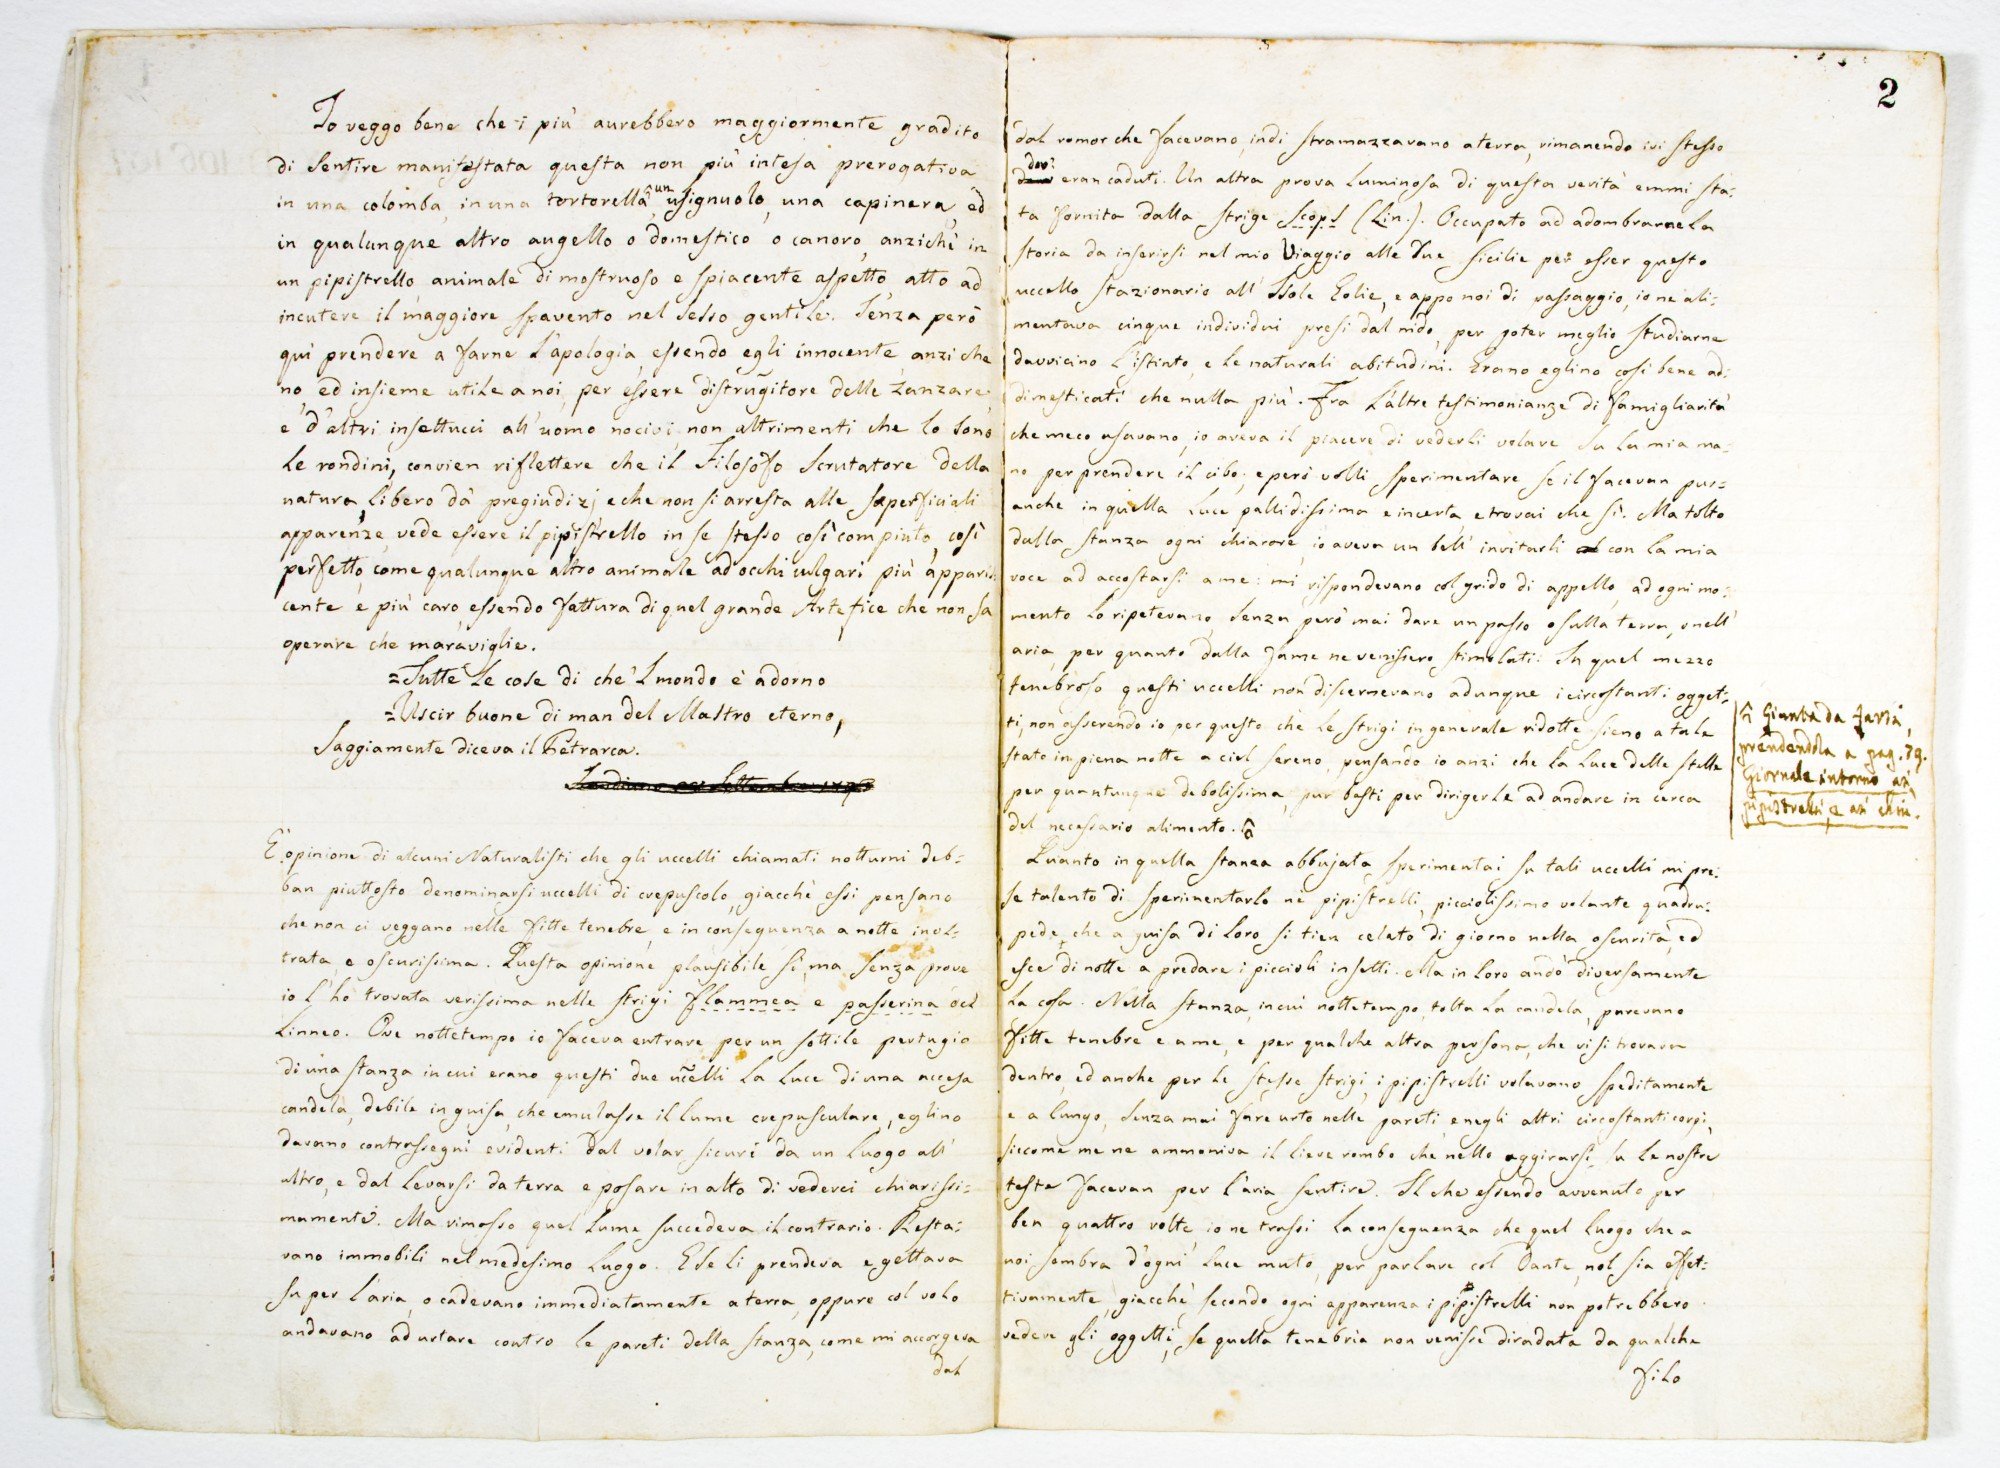 Io veggo bene che i più aurebbero maggiormente gradito
di sentire manifestata questa non più intesa prerogativa
in una colomba, in una tortorella, un usignuolo, una capinera, ed
in qualunque altro augello o domestico, o canoro, anzichè in
un pipistrello, animale di mostruoso e spiacente aspetto, atto ad
incutere il maggiore spavento nel sesso gentile. Senza però
quì prendere a farne l'apologia, essendo egli innocente, anzi che
no, ed insieme utile a noi, per essere distruggitore delle zanzare
e d'altri insettucci all'uomo nocivi, non altrimenti che lo sono
le rondini, convien riflettere che il Filosofo scrutatore della
natura, libero da' pregiudizj, e che non si arresta alle superficiali
apparenze, vede essere il pipistrello in se stesso così compiuto, così
perfetto, come qualunque altro animale ad occhi vulgari più appari-
cente e più caro, essendo fattura di quel grande Artefice che non sa
operare che maraviglie.
=Tutte le cose di che 'l mondo è adorno
=Uscir buone di man del Mastro eterno,
Saggiamente diceva il Petrarca.
È opinione di alcuni Naturalisti che gli uccelli chiamati notturni deb-
ban piuttosto denominarsi uccelli di crepuscolo, giacchè essi pensano
che non ci veggano nelle fitte tenebre, e in conseguenza a notte inol-
trata, e oscurissima. Questa opinione plausibile sì, ma senza prove
io l'ho trovata verissima nelle strigi flammea e passerina del
Linneo. Ove nottetempo io faceva entrare per un sottile pertugio
di una stanza in cui erano questi due uccelli la luce di una accesa
candela, debile in guisa, che emulasse il lume crepusculare, eglino
davano contrassegni evidenti dal volar sicuri da un luogo all'
altro, e dal levarsi da terra e posare in alto di vederci chiarissi-
mamente. Ma rimosso quel lume succedeva il contrario. Resta-
vano immobili nel medesimo luogo. E se li prendeva e gettava
su per l'aria, o cadevano immediatamente a terra, oppure col volo
andavano ad urtare contro le pareti della stanza, come mi accorgeva
dal
2
dal romor che facevano, indi stramazzavano a terra, rimanendo ivi stesso
dov'
eran caduti. Un altra prova luminosa di questa verità emmi sta-
ta fornita dalla strige Scops (Lin.). Occupato ad adombrarne la
storia da inserirsi nel mio Viaggio alle due Sicilie per esser questo
uccello stazionario all'Isole Eolie, e appo noi di passaggio, io ne ali-
mentava cinque individui presi dal nido, per poter meglio studiarne
davvicino l'istinto, e le naturali abitudini. Erano eglino così bene ad-
dimesticati che nulla più. Fra l'altre testimonianze di famigliarità
che meco usavano, io aveva il piacere di vederli volare su la mia ma-
no per prendere il cibo; e però volli sperimentare se il facevan pur-
anche in quella luce pallidissima e incerta, e trovai che sì. Ma tolto
dalla stanza ogni chiarore, io aveva un bell' invitarli con la mia
voce ad accostarsi a me: mi rispondevano col grido di appello, ad ogni mo-
mento lo ripetevano, senza però mai dare un passo o sulla terra, o nell'
aria, per quanto dalla fame ne venissero stimolati. In quel mezzo
tenebroso questi uccelli non discernevano adunque i circostanti ogget-
ti, non asserendo io per questo che le strigi in generale ridotte sieno a tale
stato in piena notte a ciel sereno, pensando io anzi che la luce delle stelle
per quantunque debolissima, pur basti per dirigerle ad andare in cerca
del necessario alimento.
Giunta da farsi,
prendendola a pag. 79.
Giornale intorno ai
pipistrelli, e ai
Quanto in quella stanza abbujata sperimentai su tali uccelli mi pre-
se talento di sperimentarlo ne' pipistrelli, picciolissimo volante quadru-
pede, che a guisa di loro si tien celato di giorno nella oscurità, ed
esce di notte a predare i piccioli insetti. Ma in loro andò diversamente
la cosa. Nella stanza, in cui nottetempo, tolta la candela, parevano
fitte tenebre e a me, e per qualche altra persona, che vi si trovava
dentro, ed anche per le stesse strigi, i pipistrelli volavano speditamente
e a lungo, senza mai fare urto nelle pareti, e negli altri circostanti corpi,
siccome me ne ammoniva il lieve rombo che nello aggirarsi su le nostre
teste facevan per l'aria sentire. Il che essendo avvenuto per
ben quattro volte, io ne trassi la conseguenza che quel luogo che a
noi sembra d'ogni luce muto, per parlare col Dante, nol sia effet-
tivamente, giacchè secondo ogni apparenza i pipistrelli non potrebbero
vedere gli oggetti, se quella tenebria non venisse diradata da qualche
filo